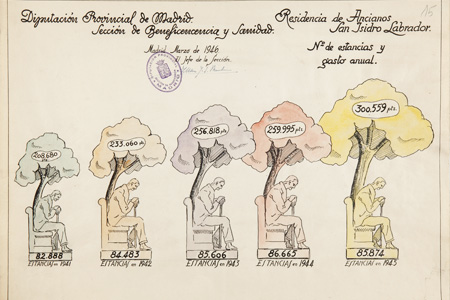 Diputación Provincial de Madrid.
Sección de Beneficencencia y Sanidad.
Madrid, Marzo de 1946
El Jefe de la Sección.
Residencia de Ancianos
San Isidro Labrador.
Nº de estancias y
gasto anual.
15
208.680 pts.
233.060 pts.
256.818 pts.
259.995 pts.
300.559 pts.
82.888
84.483
85.606
86.665
85.874
ESTANCIAS en 1941
ESTANCIAS en 1942
ESTANCIAS en 1943
ESTANCIAS en 1944
ESTANCIAS en 1945